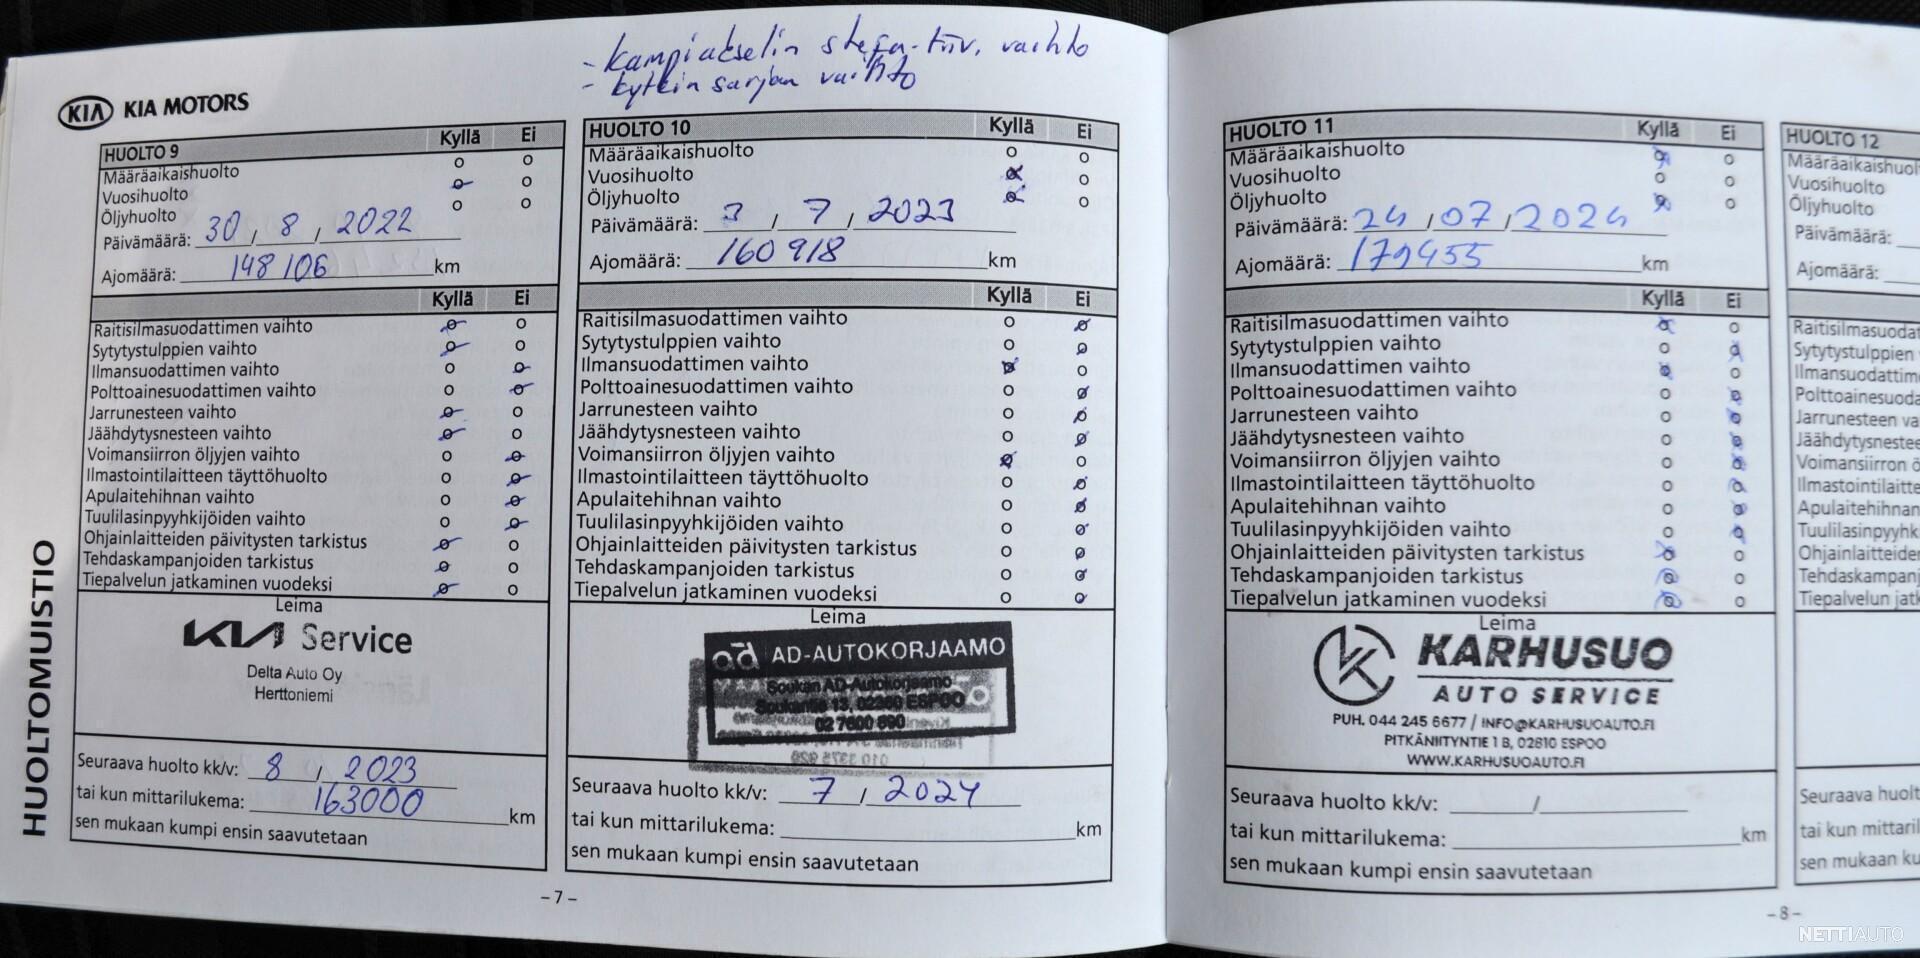 - kampiakselin stefa-tiiv. vaihto
- kytkin sarjan vaihto
KIA KIA MOTORS
HUOLTOMUISTIO
HUOLTO 9 Kyllä Ei
Määräaikaishuolto o o
Vuosihuolto o o
Öljyhuolto o o
Päivämäärä: 30 / 8 / 2022
Ajomäärä: 148106 km
Kyllä Ei
Raitisilmasuodattimen vaihto o o
Sytytystulppien vaihto o o
Ilmansuodattimen vaihto o o
Polttoainesuodattimen vaihto o o
Jarrunesteen vaihto o o
Jäähdytysnesteen vaihto o o
Voimansiirron öljyjen vaihto o o
Ilmastointilaitteen täyttöhuolto o o
Apulaitehihnan vaihto o o
Tuulilasinpyyhkijöiden vaihto o o
Ohjainlaitteiden päivitysten tarkistus o o
Tehdaskampanjoiden tarkistus o o
Tiepalvelun jatkaminen vuodeksi o o
Leima
KIA Service
Delta Auto Oy
Herttoniemi
Seuraava huolto kk/v: 8 / 2023
tai kun mittarilukema: 163000 km
sen mukaan kumpi ensin saavutetaan
HUOLTO 10 Kyllä Ei
Määräaikaishuolto o o
Vuosihuolto o o
Öljyhuolto o o
Päivämäärä: 3 / 7 / 2023
Ajomäärä: 160918 km
Kyllä Ei
Raitisilmasuodattimen vaihto o o
Sytytystulppien vaihto o o
Ilmansuodattimen vaihto o o
Polttoainesuodattimen vaihto o o
Jarrunesteen vaihto o o
Jäähdytysnesteen vaihto o o
Voimansiirron öljyjen vaihto o o
Ilmastointilaitteen täyttöhuolto o o
Apulaitehihnan vaihto o o
Tuulilasinpyyhkijöiden vaihto o o
Ohjainlaitteiden päivitysten tarkistus o o
Tehdaskampanjoiden tarkistus o o
Tiepalvelun jatkaminen vuodeksi o o
Leima
ad AD-AUTOKORJAAMO
Soukan AD-Autokorjaamo
Soukantie 13, 02360 ESPOO
02 7600 690
Seuraava huolto kk/v: 7 / 2024
tai kun mittarilukema: km
sen mukaan kumpi ensin saavutetaan
- 7 -
HUOLTO 11 Kyllä Ei
Määräaikaishuolto o o
Vuosihuolto o o
Öljyhuolto o o
Päivämäärä: 24 / 07 / 2024
Ajomäärä: 179455 km
Kyllä Ei
Raitisilmasuodattimen vaihto o o
Sytytystulppien vaihto o o
Ilmansuodattimen vaihto o o
Polttoainesuodattimen vaihto o o
Jarrunesteen vaihto o o
Jäähdytysnesteen vaihto o o
Voimansiirron öljyjen vaihto o o
Ilmastointilaitteen täyttöhuolto o o
Apulaitehihnan vaihto o o
Tuulilasinpyyhkijöiden vaihto o o
Ohjainlaitteiden päivitysten tarkistus o o
Tehdaskampanjoiden tarkistus o o
Tiepalvelun jatkaminen vuodeksi o o
Leima
KARHUSUO
AUTO SERVICE
PUH. 044 245 6677 / INFO@KARHUSUOAUTO.FI
PITKÄNIITYNTIE 1 B, 02810 ESPOO
WWW.KARHUSUOAUTO.FI
Seuraava huolto kk/v: /
tai kun mittarilukema: km
sen mukaan kumpi ensin saavutetaan
HUOLTO 12
Määräaikaishuol
Vuosihuolto
Öljyhuolto
Päivämäärä:
Ajomäärä:
Raitisilmasuodat
Sytytystulppien
Ilmansuodattim
Polttoainesuoda
Jarrunesteen va
Jäähdytysnestee
Voimansiirron ö
Ilmastointilaitte
Apulaitehihnan
Tuulilasinpyyhk
Ohjainlaitteide
Tehdaskampanj
Tiepalvelun jatk
Seuraava huolt
tai kun mittaril
sen mukaan ku
- 8 -
NETTIAUTO